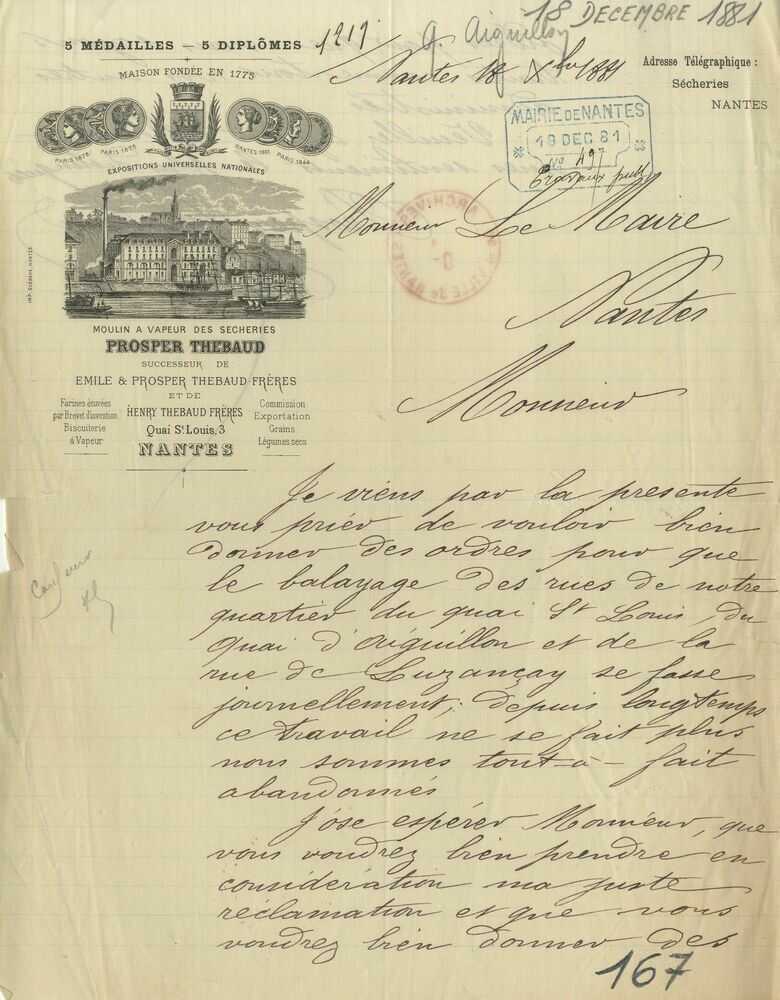 18 DECEMBRE 1881
5 MÉDAILLES — 5 DIPLÔMES
1219
Q. Aiguillon
Nantes 18 Xbre 1881
Adresse Télégraphique :
Sécheries
NANTES
MAISON FONDÉE EN 1775
PARIS 1878
PARIS 1855
NANTES 1861
PARIS 1844
EXPOSITIONS UNIVERSELLES NATIONALES
MAIRIE DE NANTES
19 DEC 81
No 497
Travaux publ
ARCHIVES
Monsieur Le Maire
Nantes
Monsieur
MOULIN A VAPEUR DES SECHERIES
PROSPER THEBAUD
SUCCESSEUR DE
EMILE & PROSPER THEBAUD FRÈRES
ET DE
HENRY THEBAUD FRÈRES
Quai St Louis, 3
NANTES
Farines étuvées
par Brevet d'invention
Biscuiterie
à Vapeur
Commission
Exportation
Grains
Légumes secs
Je viens par la présente
vous prier de vouloir bien
donner des ordres pour que
le balayage des rues de notre
quartier du quai St Louis, du
quai d'Aiguillon et de la
rue de Luzançay se fasse
journellement; depuis longtemps
ce travail ne se fait plus
nous sommes tout-à-fait
abandonnés
J'ose espérer Monsieur, que
vous voudrez bien prendre en
considération ma juste
réclamation et que vous
voudrez bien donner des
167